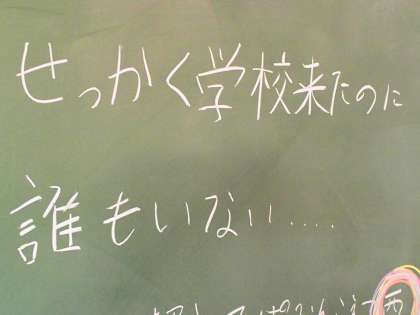 せっかく学校来たのに
誰もいない.....